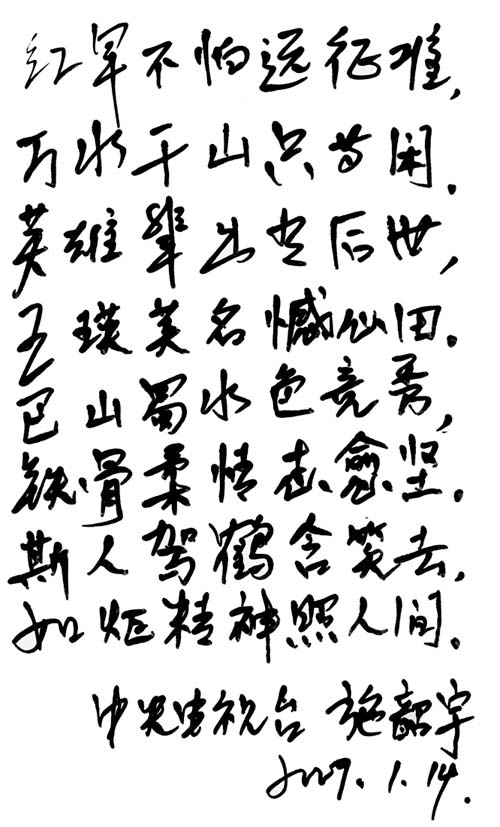 红军不怕远征难，
万水千山只等闲。
英雄辈出出后世，
王瑛美名憾仙田。
巴山蜀水色竞秀，
铁骨柔情志愈坚。
斯人驾鹤含笑去，
如炬精神照人间。
中央电视台 施韶宇
2009.1.14.